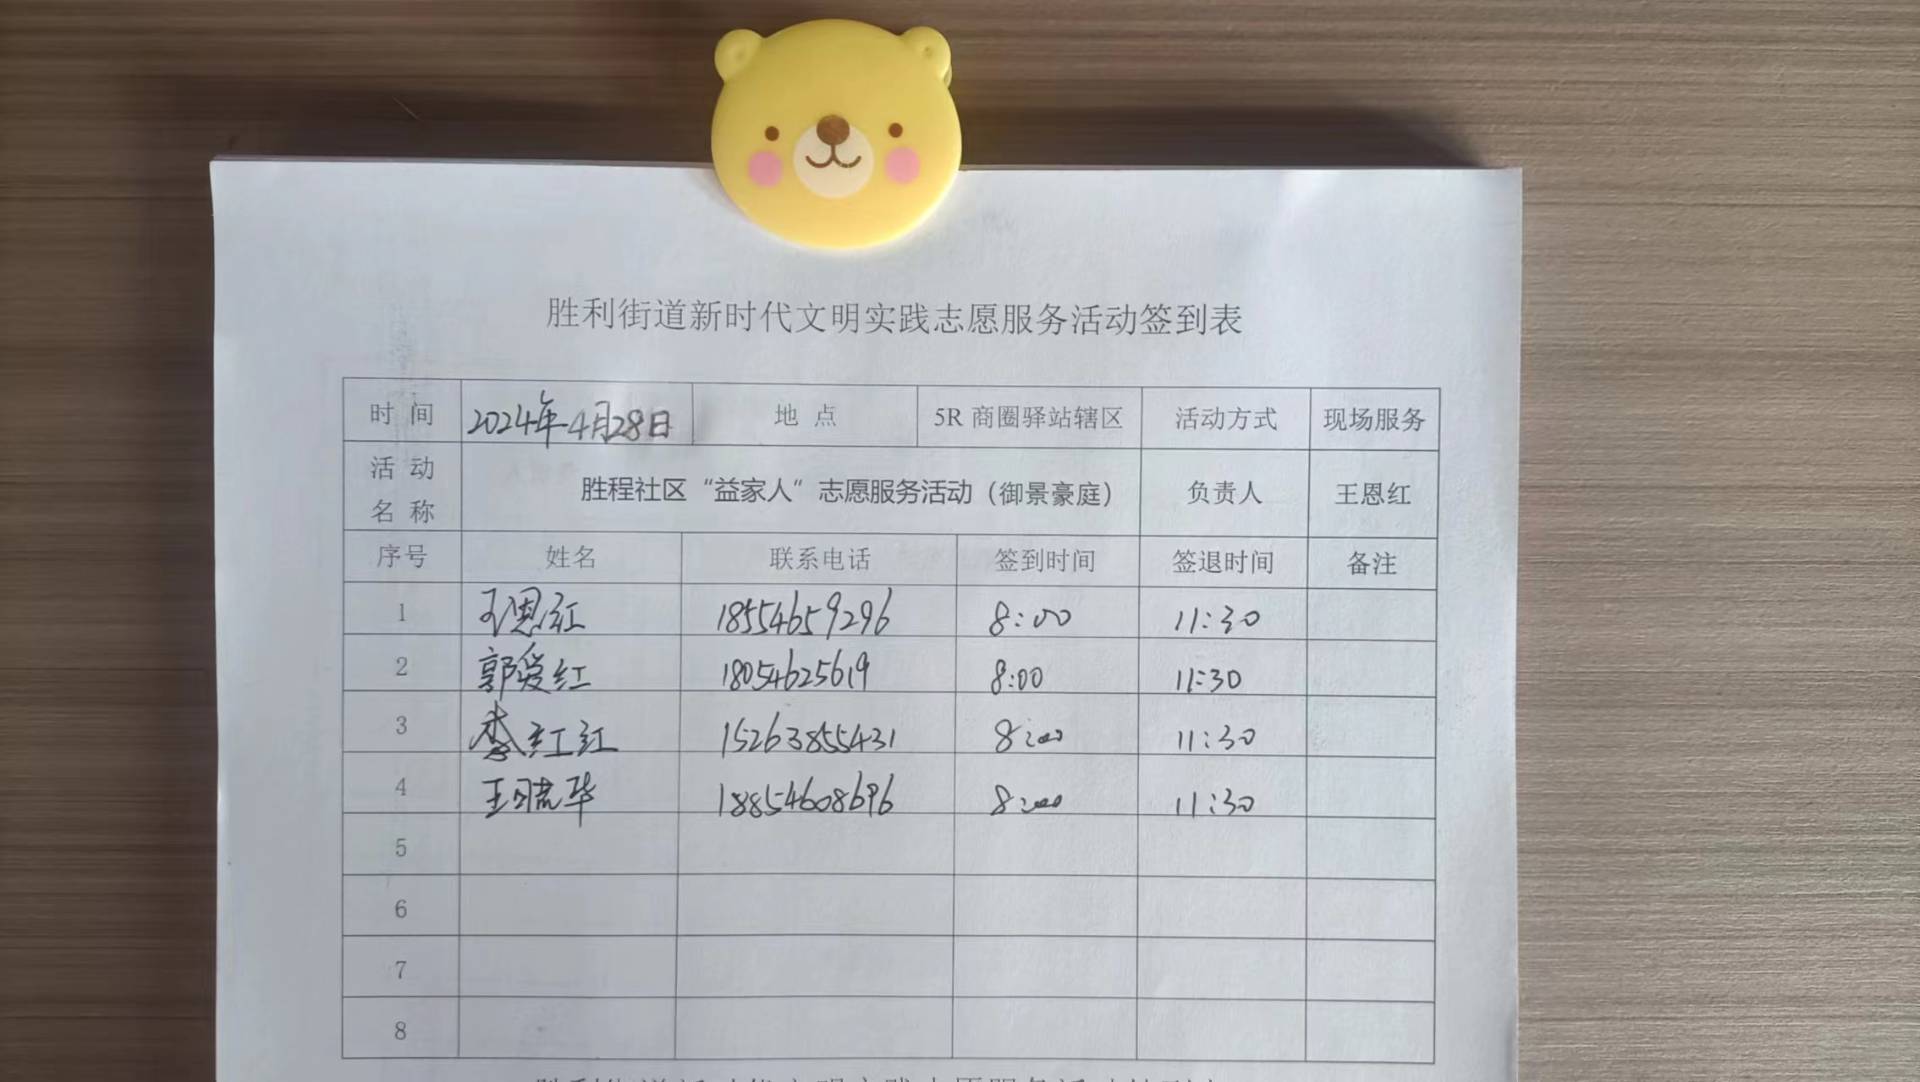 胜利街道新时代文明实践志愿服务活动签到表
时 间 2024年4月28日 地 点 5R 商圈驿站辖区 活动方式 现场服务
活 动 名 称 胜程社区“益家人”志愿服务活动（御景豪庭） 负责人 王恩红
序号 姓名 联系电话 签到时间 签退时间 备注
1 王恩红 18554659296 8:00 11:30
2 郭爱红 18054625619 8:00 11:30
3 李红红 15263855431 8:00 11:30
4 王晓华 18854608696 8:00 11:30
5
6
7
8
胜利街道新时代文明实践志愿服务活动签到表